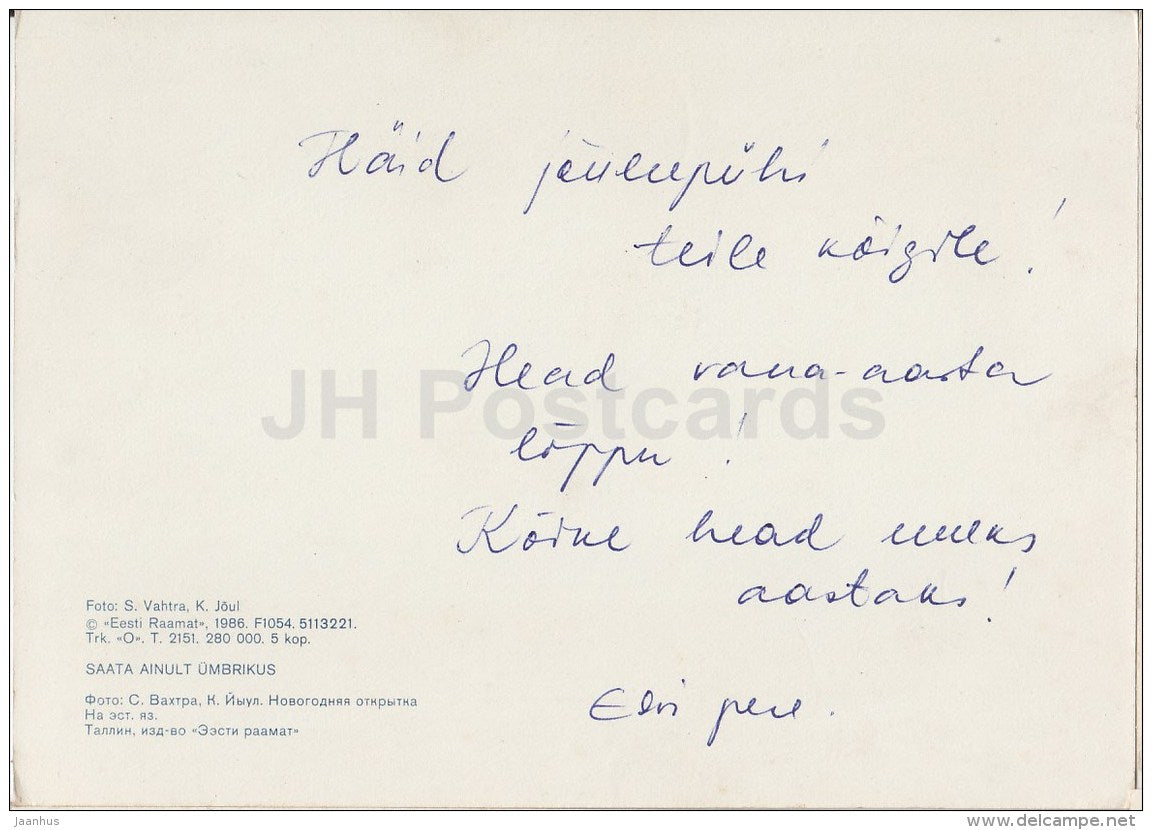 Häid jõulupühi
teile kõigile!
Head vana-aasta
lõppu!
Kõike head uueks
aastaks!
Elvi pere.
JH Postcards
Foto: S. Vahtra, K. Jõul
© «Eesti Raamat», 1986. F1054. 5113221.
Trk. «O». T. 2151. 280 000. 5 kop.
SAATA AINULT ÜMBRIKUS
Фото: С. Вахтра, К. Йыул. Новогодняя открытка
На эст. яз.
Таллин, изд-во «Ээсти раамат»
Jaanhus
www.delcampe.net